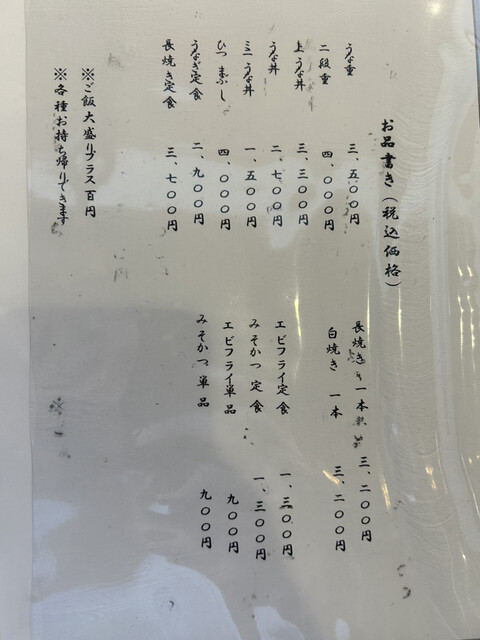 お品書き（税込価格）
うな重 三、五〇〇円
二段重 四、〇〇〇円
上うな丼 三、三〇〇円
うな丼 二、七〇〇円
ミニうな丼 一、五〇〇円
ひつまぶし 四、〇〇〇円
うなぎ定食 二、九〇〇円
長焼き定食 三、七〇〇円
長焼き 一本 三、二〇〇円
白焼き 一本 三、二〇〇円
エビフライ定食 一、三〇〇円
みそかつ定食 一、三〇〇円
エビフライ単品 九〇〇円
みそかつ単品 九〇〇円
※ご飯大盛りプラス百円
※各種お持ち帰りできます